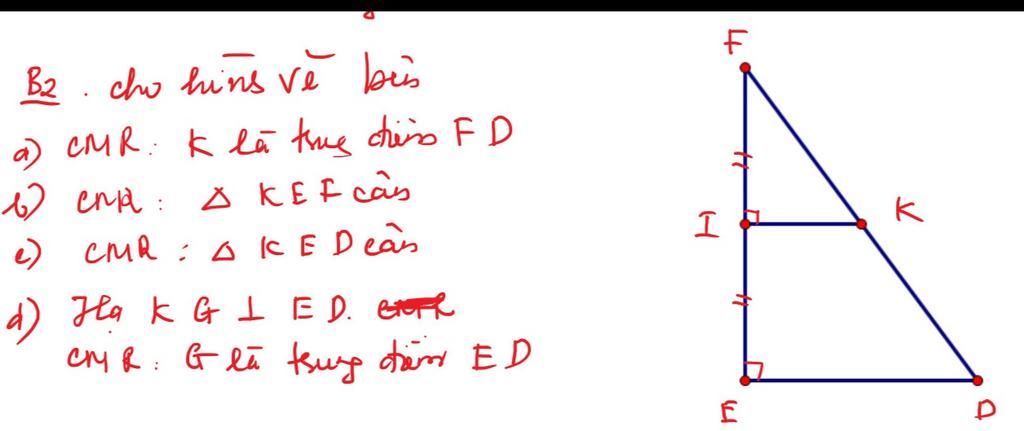 B2. cho hình vẽ bên
a) CMR: K là trung điểm FD
b) CMR: Δ KEF cân
c) CMR: Δ KED cân
d) Hạ KG ⊥ ED.
CMR: G là trung điểm ED
F
I
K
E
D